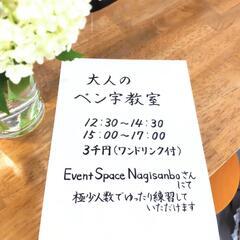 大人の
ペン字教室
12:30～14:30
15:00～17:00
3千円(ワンドリンク付)
Event Space Nagisanboさん
にて
極少人数でゆったり練習して
いただけます